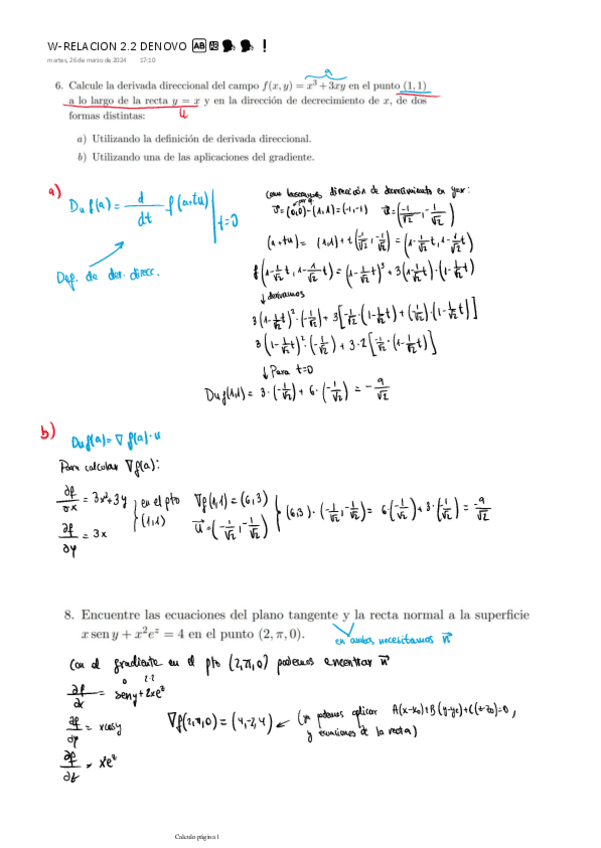 W-RELACION 2.2 DENOVO
martes, 26 de marzo de 2024 17:10
6. Calcule la derivada direccional del campo f(x, y) = x³ + 3xy en el punto (1, 1)
a lo largo de la recta y = x y en la dirección de decrecimiento de x, de dos
formas distintas:
a
u
a) Utilizando la definición de derivada direccional.
b) Utilizando una de las aplicaciones del gradiente.
a)
Du f(a) = d/dt f(a+tu) | t=0
Def. de der. direcc.
como buscamos dirección de decrecimiento en y=x:
v⃗ = (0,0)-(1,1) = (-1,-1) u⃗ = (-1/√2, -1/√2)
(a+tu) = (1,1) + t(-1/√2, -1/√2) = (1-1/√2 t, 1-1/√2 t)
f(1-1/√2 t, 1-1/√2 t) = (1-1/√2 t)³ + 3(1-1/√2 t)·(1-1/√2 t)
↓ derivamos
3(1-1/√2 t)²·(-1/√2) + 3[-1/√2·(1-1/√2 t) + (-1/√2)·(1-1/√2 t)]
3(1-1/√2 t)²·(-1/√2) + 3·2[-1/√2·(1-1/√2 t)]
↓ Para t=0
Du f(1,1) = 3·(-1/√2) + 6·(-1/√2) = -9/√2
b)
Du f(a) = ∇f(a)·u
Para calcular ∇f(a):
∂f/∂x = 3x²+3y
∂f/∂y = 3x
en el pto
(1,1)
∇f(1,1) = (6,3)
u⃗ = (-1/√2, -1/√2)
(6,3)·(-1/√2, -1/√2) = 6·(-1/√2) + 3·(-1/√2) = -9/√2
8. Encuentre las ecuaciones del plano tangente y la recta normal a la superficie
x sen y + x²eᶻ = 4 en el punto (2, π, 0).
en ambos necesitamos n⃗
Con el gradiente en el pto (2,π,0) podemos encontrar n⃗
0 2·2
∂f/∂x = seny+2xeᶻ
∂f/∂y = xcosy
∂f/∂z = x²eᶻ
∇f(2,π,0) = (4,-2,4) ← (ya podemos aplicar A(x-x₀)+B(y-y₀)+C(z-z₀)=0,
y ecuaciones de la recta)
Calculo página 1